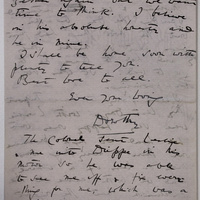 time to think. I believe
in his absolute honesty and
he in mine.
I shall be home soon with
plenty to tell you.
Best love to all.
Ever your loving
Dorothy
The Colonel sent
me into Dieppe in his
motor so he was able
to see me off & were
things for me, which was a